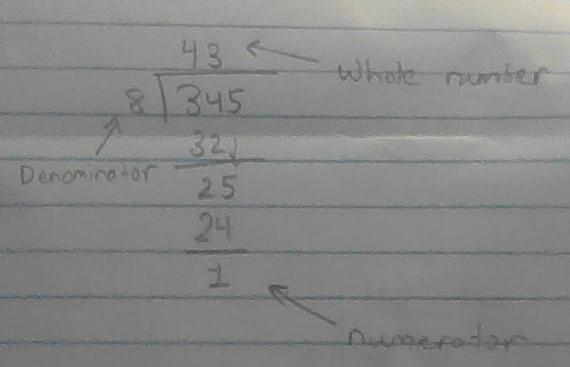 43 Whole number
8 345
32
Denominator
25
24
1
numerator